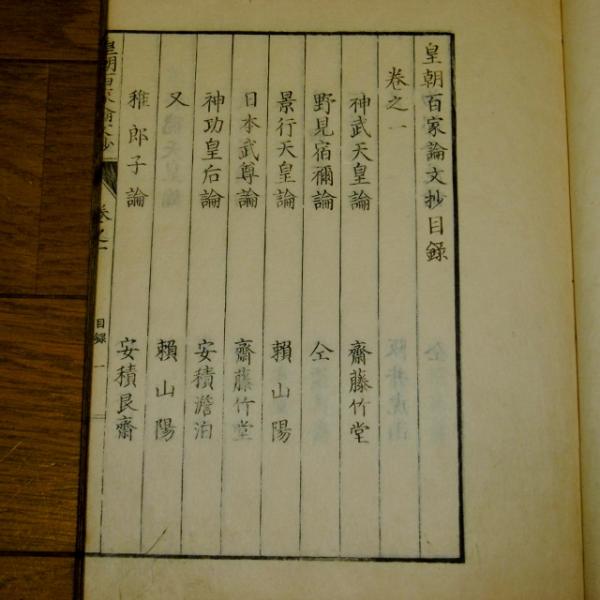 皇朝百家論文抄目錄
卷之一
神武天皇論 齋藤竹堂
野見宿禰論 仝
景行天皇論 賴山陽
日本武尊論 齋藤竹堂
神功皇后論 安積澹泊
又 賴山陽
稚郎子論 安積艮齋
皇朝百家論文抄 卷之一 目錄 一